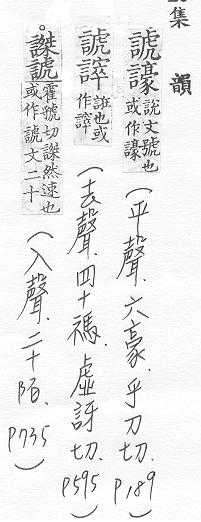 集 韻
諕譹 說文號也或作譹 (平聲.六豪.乎刀切. P189)
諕 也或作 (去聲.四十禡.虛訝切. P595)
。謋諕 霍虢切謋然速也或作諕文二十 (入聲.二十陌. P735)